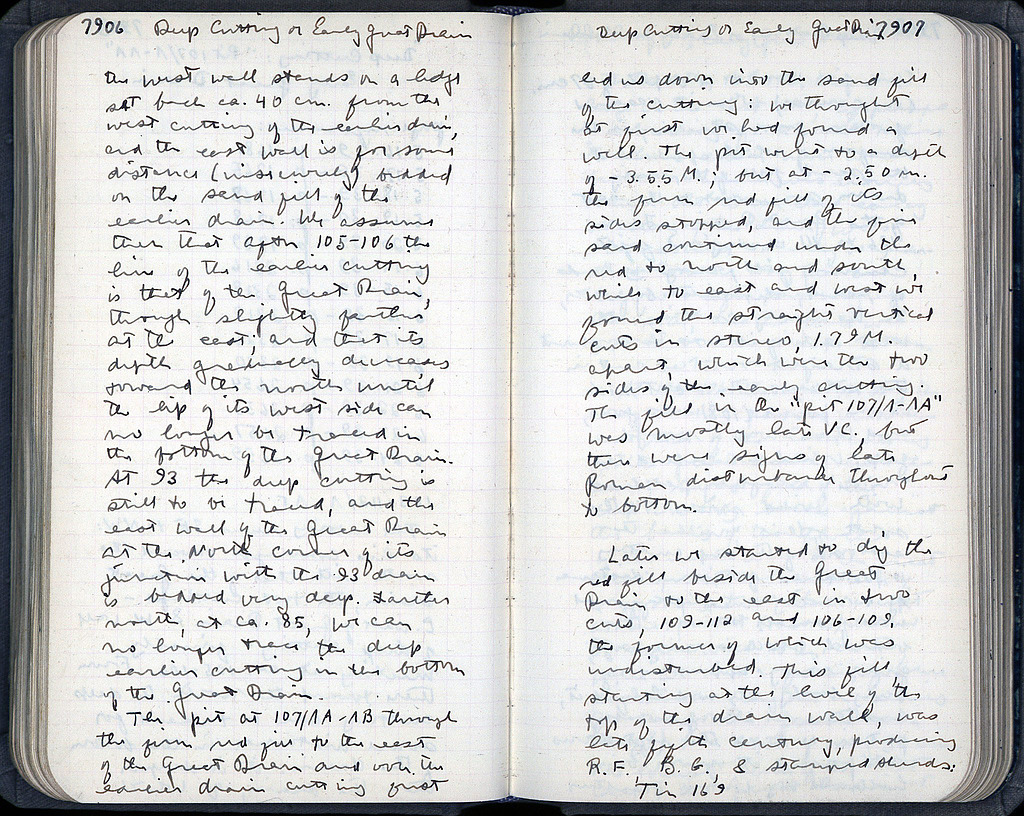 7906 Deep Cutting or Early Great Drain
the west wall stands on a ledge
set back ca. 40 cm. from the
west cutting of the earlier drain,
and the east wall is for some
distance (insecurely) bedded
on the sand fill of the
earlier drain. We assume
then that after 105-106 the
line of the earlier cutting
is that of the Great Drain,
though slightly farther
at the east; and that its
depth gradually decreases
toward the north until
the lip of its west side can
no longer be traced in
the bottom of the Great Drain.
At 93 the deep cutting is
still to be traced, and the
east wall of the Great Drain
at the North corner of its
junction with the 93 drain
is bedded very deep. Farther
north, at ca. 85, we can
no longer trace the deep
earlier cutting in the bottom
of the Great Drain.
The pit at 107/ΛA-ΛB through
the firm red fill to the east
of the Great Drain and over the
earlier drain cutting first
Deep Cutting or Early Great Drain 7907
led us down into the sand fill
of the cutting: we thought
at first we had found a
well. The pit went to a depth
of -3.55 M.; but at -2.50 m.
the firm red fill of its
sides stopped, and the fine
sand continued under the
red to north and south,
while to east and west we
found the straight vertical
cuts in stereo, 1.79 M.
apart, which were the two
sides of the early cutting.
The fill in the "pit 107/Λ-ΛA"
was mostly late VC., but
there were signs of late
Roman disturbance throughout
to bottom.
Later we started to dig the
red fill beside the Great
Drain to the east in two
cuts, 109-112 and 106-109,
the former of which was
undisturbed. This fill,
starting at the level of the
top of the drain wall, was
late fifth century, producing
R.F., B.G., & stamped sherds:
Tin 169